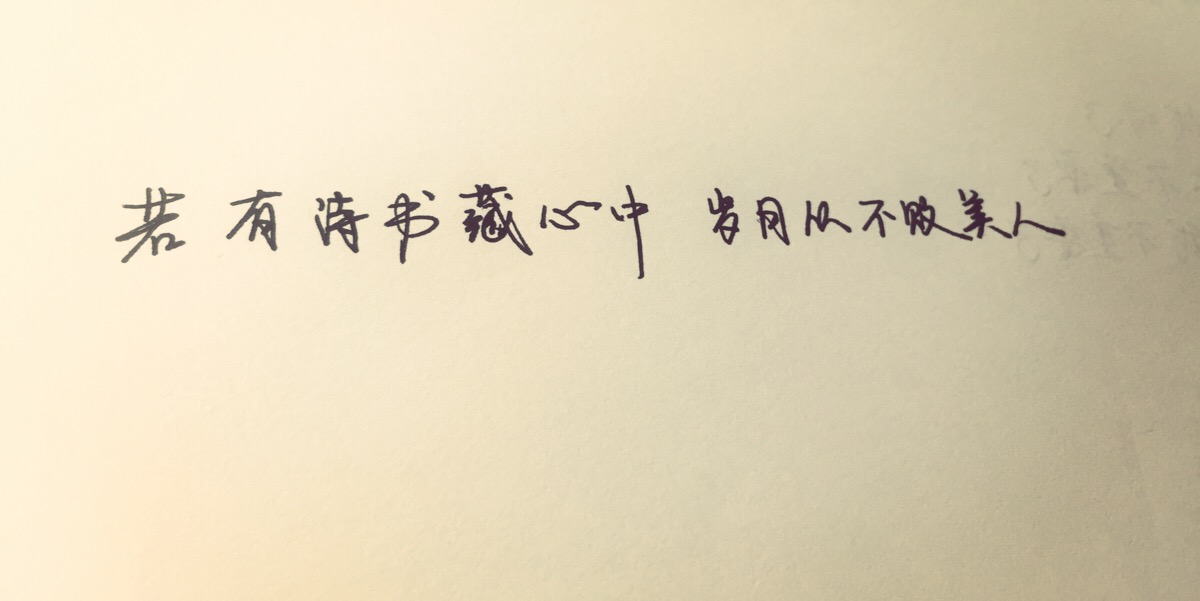 若有诗书藏心中 岁月从不败美人